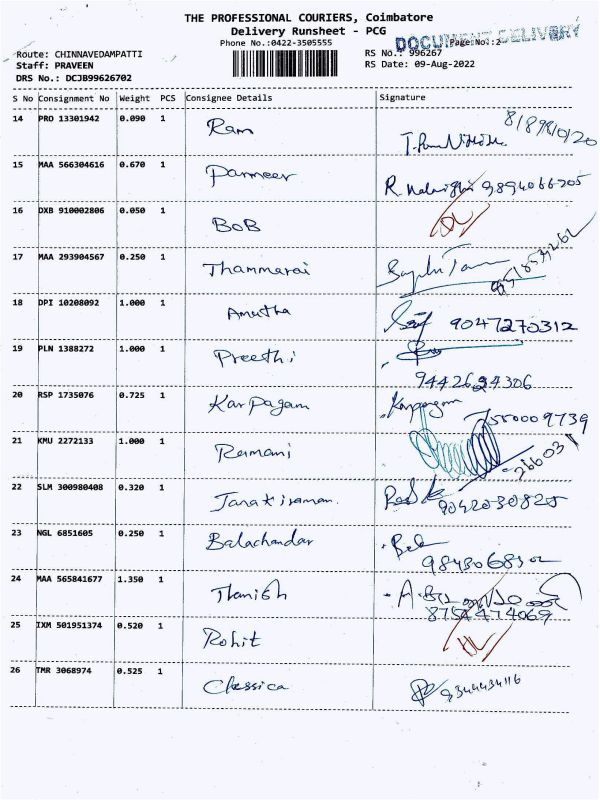 THE PROFESSIONAL COURIERS, Coimbatore
Delivery Runsheet - PCG
Phone No.:0422-3505555
DOCUMENT DELIVERY
Page No.:2
Route: CHINNAVEDAMPATTI
RS No.: 996267
Staff: PRAVEEN
RS Date: 09-Aug-2022
DRS No.: DCJB99626702
S No Consignment No Weight PCS Consignee Details Signature
14 PRO 13301942 0.090 1 Ram
15 MAA 566304616 0.670 1 Parmeer R. 9894066205
16 DXB 910002806 0.050 1 BOB
17 MAA 293904567 0.250 1 Thammarai
18 DPI 10208092 1.000 1 Amutha 9047270312
19 PLN 1388272 1.000 1 Preethi
9442624306
20 RSP 1735076 0.725 1 Karpagam Karpagam
7550009739
21 KMU 2272133 1.000 1 Ramani
22 SLM 300980408 0.320 1 Janakiraman.
9042030825
23 NGL 6851605 0.250 1 Balachandar Bala
24 MAA 565841677 1.350 1 Thanish
8754474069
25 IXM 501951374 0.520 1 Rohit
26 TMR 3068974 0.525 1 Classica 9344434116